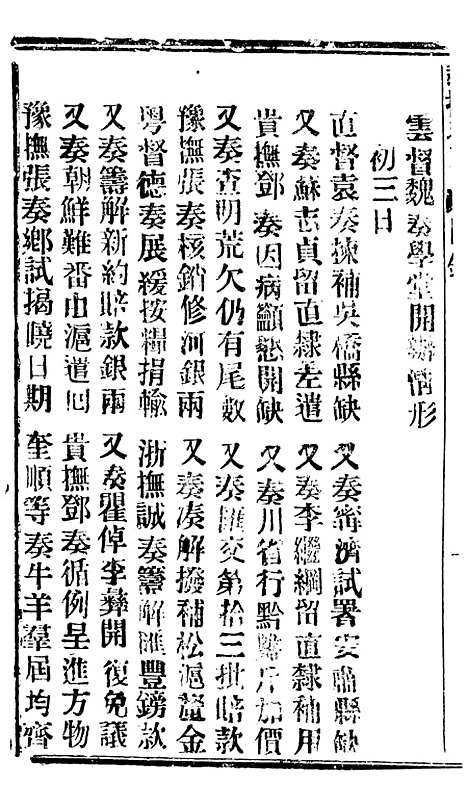 雲督魏奏學堂開辦情形
初三日
直督袁奏揀補吳橋縣缺
又奏甯濟試署安肅縣缺
又奏蘇志貞留直隸差遣
又奏李繼綱留直隸補用
貴撫鄧奏因病籲懇開缺
又奏川省行黔鹽斤加價
又奏查明荒欠仍有尾數
又奏匯交第拾三批賠款
豫撫張奏核銷修河銀兩
又奏湊解撥補松滬釐金
粵督德奏展緩按糧捐輸
浙撫誠奏籌解匯豐鎊款
又奏籌解新約賠款銀兩
又奏瞿倬李彝開復免議
又奏朝鮮難番由滬遣回
貴撫鄧奏循例呈進方物
豫撫張奏鄉試揭曉日期
奎順等奏牛羊羣屆均齊